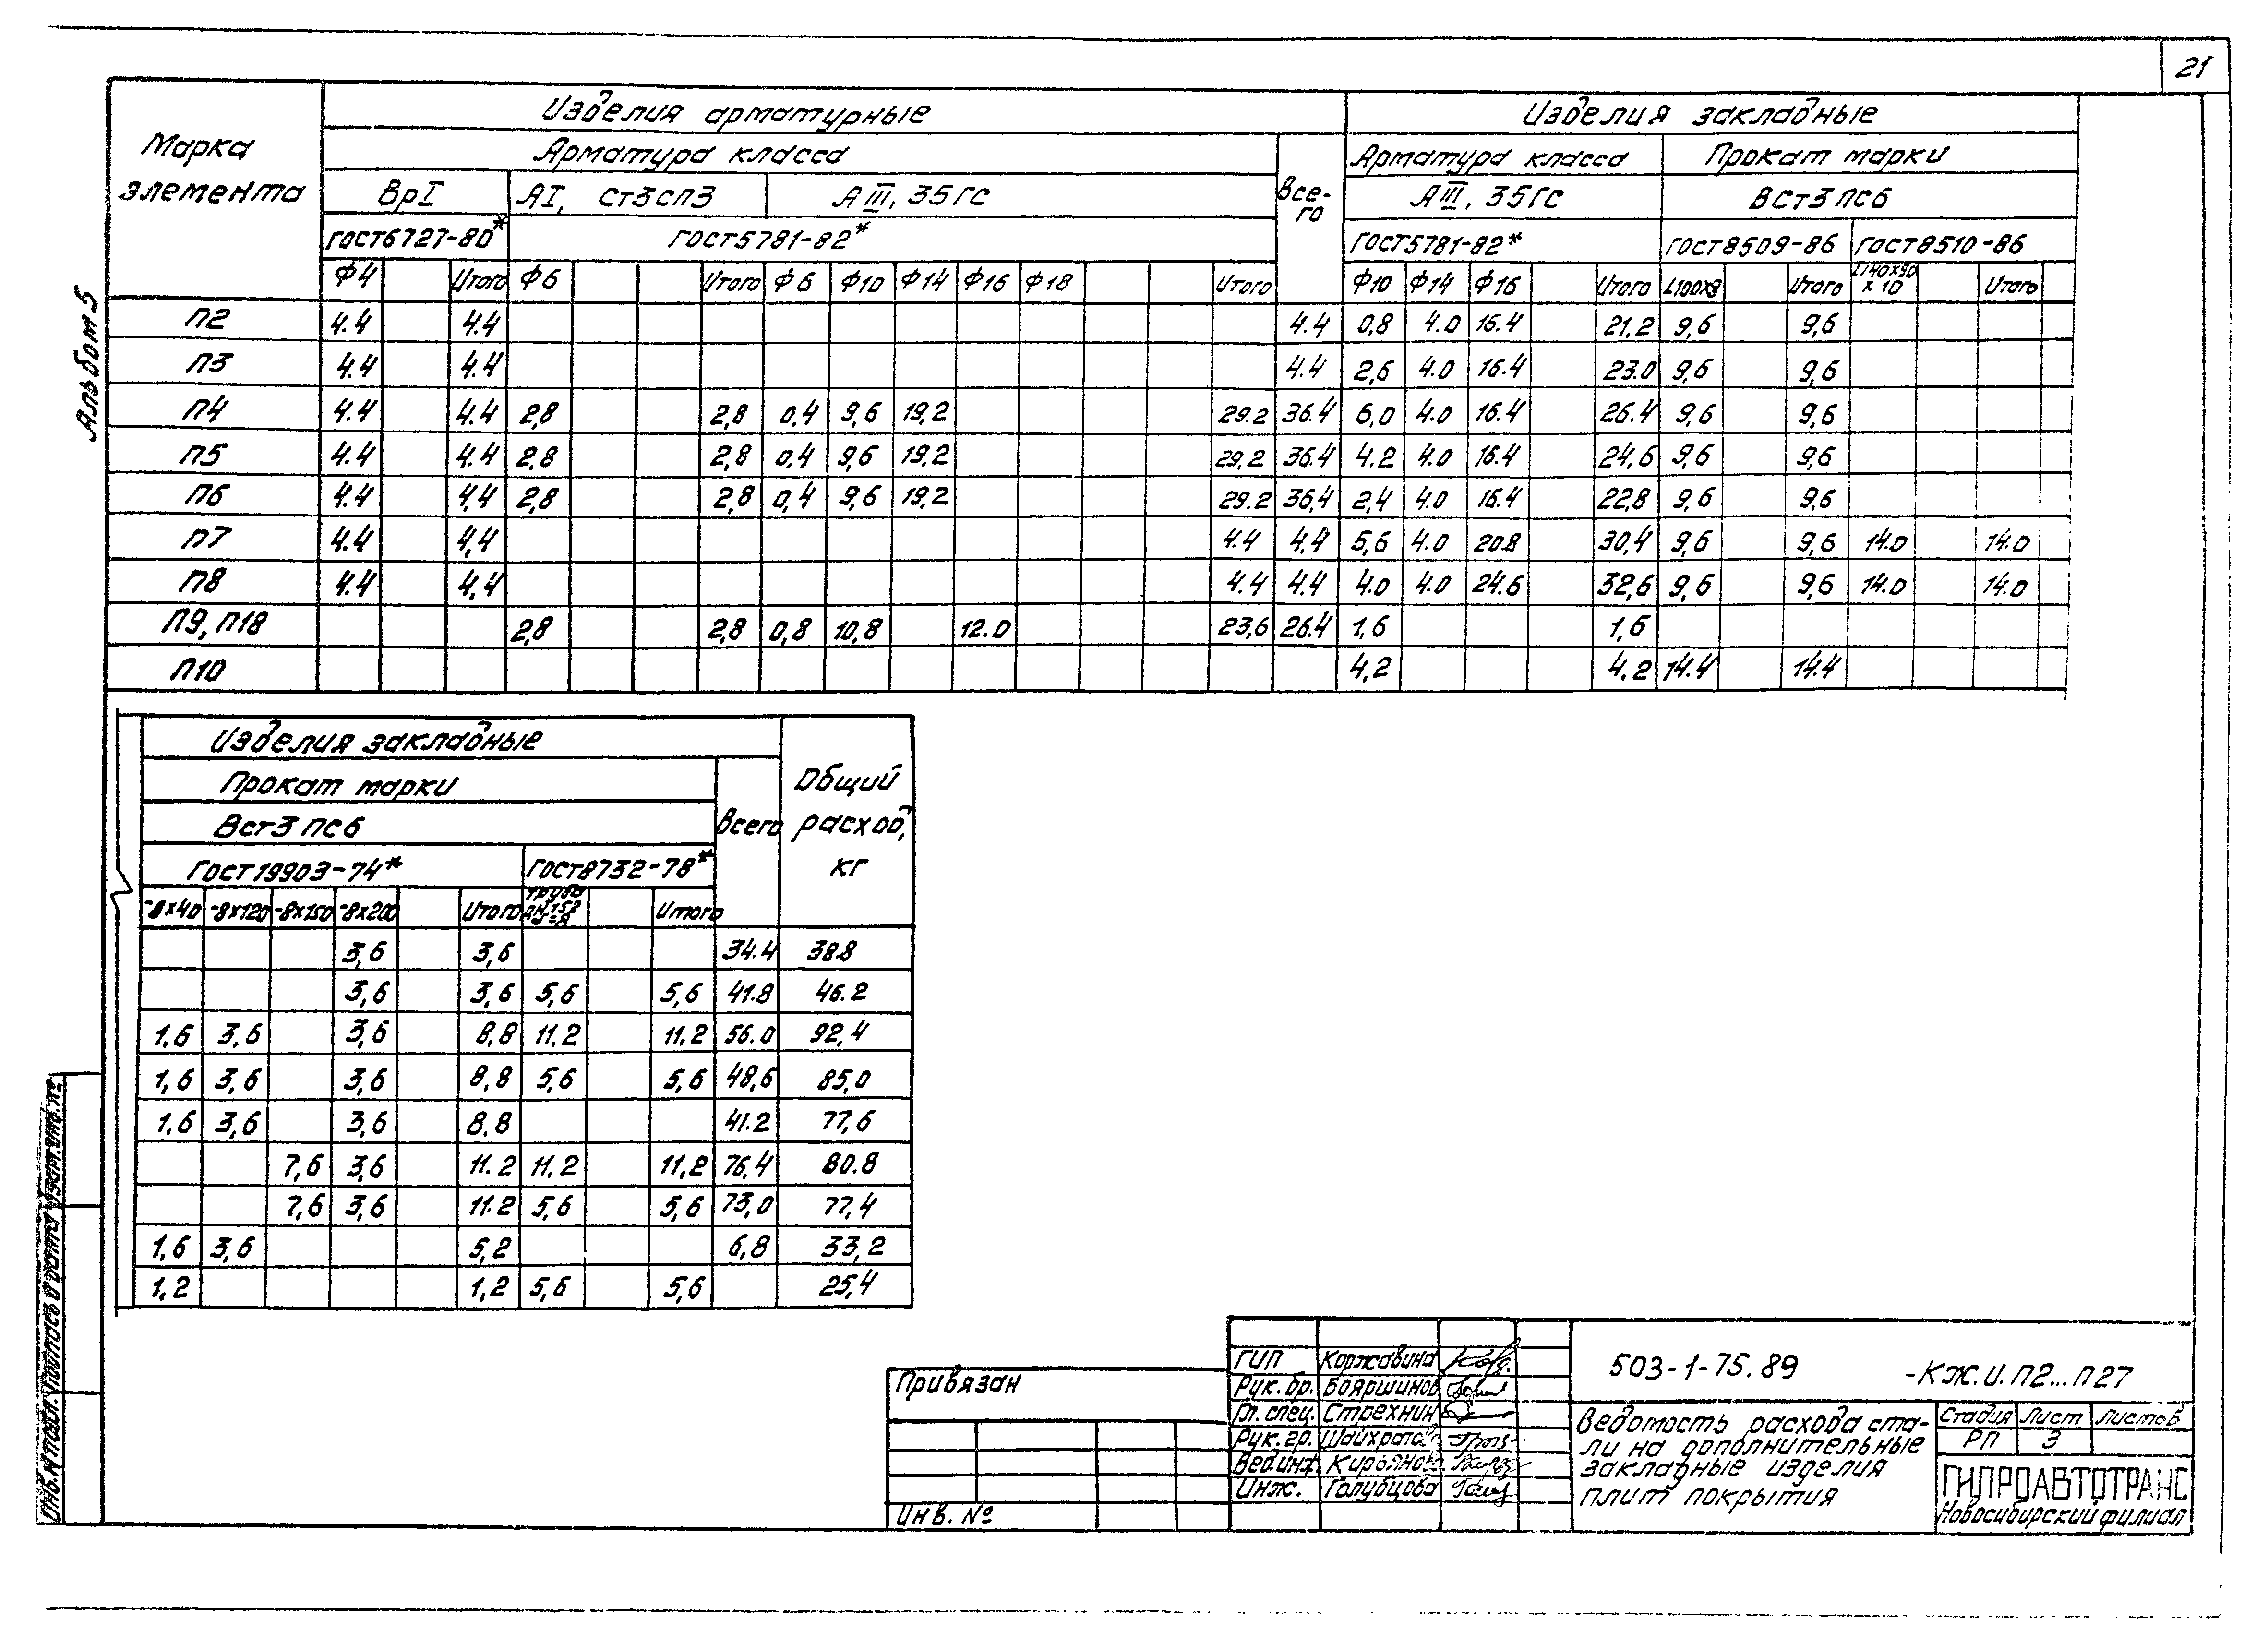 21
Альбом 5
Марка элемента
Изделия арматурные
Изделия закладные
Арматура класса
Все-го
Арматура класса
Прокат марки
ВрI
АI, Ст3сп3
АIII, 35ГС
АIII, 35ГС
ВСт3пс6
ГОСТ6727-80*
ГОСТ5781-82*
ГОСТ5781-82*
ГОСТ8509-86
ГОСТ8510-86
Ф4 Итого Ф6 Итого Ф6 Ф10 Ф14 Ф16 Ф18 Итого Ф10 Ф14 Ф16 Итого L100х8 Итого L140х90х10 Итого
П2 4.4 4.4 4.4 0,8 4.0 16.4 21.2 9,6 9,6
П3 4.4 4.4 4.4 2,6 4.0 16.4 23.0 9,6 9,6
П4 4.4 4.4 2,8 2,8 0,4 9,6 19,2 29.2 36.4 6,0 4.0 16.4 26.4 9,6 9,6
П5 4.4 4.4 2,8 2,8 0,4 9,6 19,2 29,2 36.4 4.2 4.0 16.4 24,6 9,6 9,6
П6 4.4 4,4 2,8 2,8 0,4 9,6 19,2 29.2 36,4 2,4 4.0 16.4 22,8 9,6 9,6
П7 4.4 4,4 4.4 4,4 5,6 4.0 20.8 30,4 9,6 9,6 14.0 14.0
П8 4.4 4,4 4.4 4.4 4.0 4.0 24.6 32,6 9,6 9,6 14.0 14.0
П9, П18 2,8 2,8 0,8 10,8 12.0 23,6 26.4 1,6 1,6
П10 4,2 4.2 14.4 14.4
Изделия закладные
Общий расход, кг
Прокат марки
Всего
Вст3пс6
ГОСТ19903-74*
ГОСТ8732-78*
-8х40 -8х120 -8х150 -8х200 Итого Труба Итого
3,6 3,6 34.4 38.8
3,6 3,6 5,6 5,6 41.8 46.2
1.6 3,6 3,6 8,8 11,2 11.2 56.0 92,4
1,6 3,6 3,6 8,8 5,6 5,6 48,6 85,0
1.6 3,6 3,6 8.8 41.2 77,6
7,6 3,6 11.2 11.2 11,2 76,4 80.8
7,6 3,6 11.2 5,6 5,6 73,0 77,4
1,6 3,6 5,2 6,8 33,2
1,2 1,2 5,6 5,6 25,4
Привязан
Инв. №
ГИП Коржавина
Рук. бр. Бояршинов
Гл. спец. Стрехнин
Рук. гр.
Вед.инж. Кирьянова
Инж. Голубцова
503-1-75.89 -КЖ.И.П2...П27
Ведомость расхода ста-
ли на дополнительные
закладные изделия
плит покрытия
Стадия Лист Листов
РП 3
ГИПРОАВТОТРАНС
Новосибирский филиал
Инв.№ подл. Подпись и дата Взам.инв.№